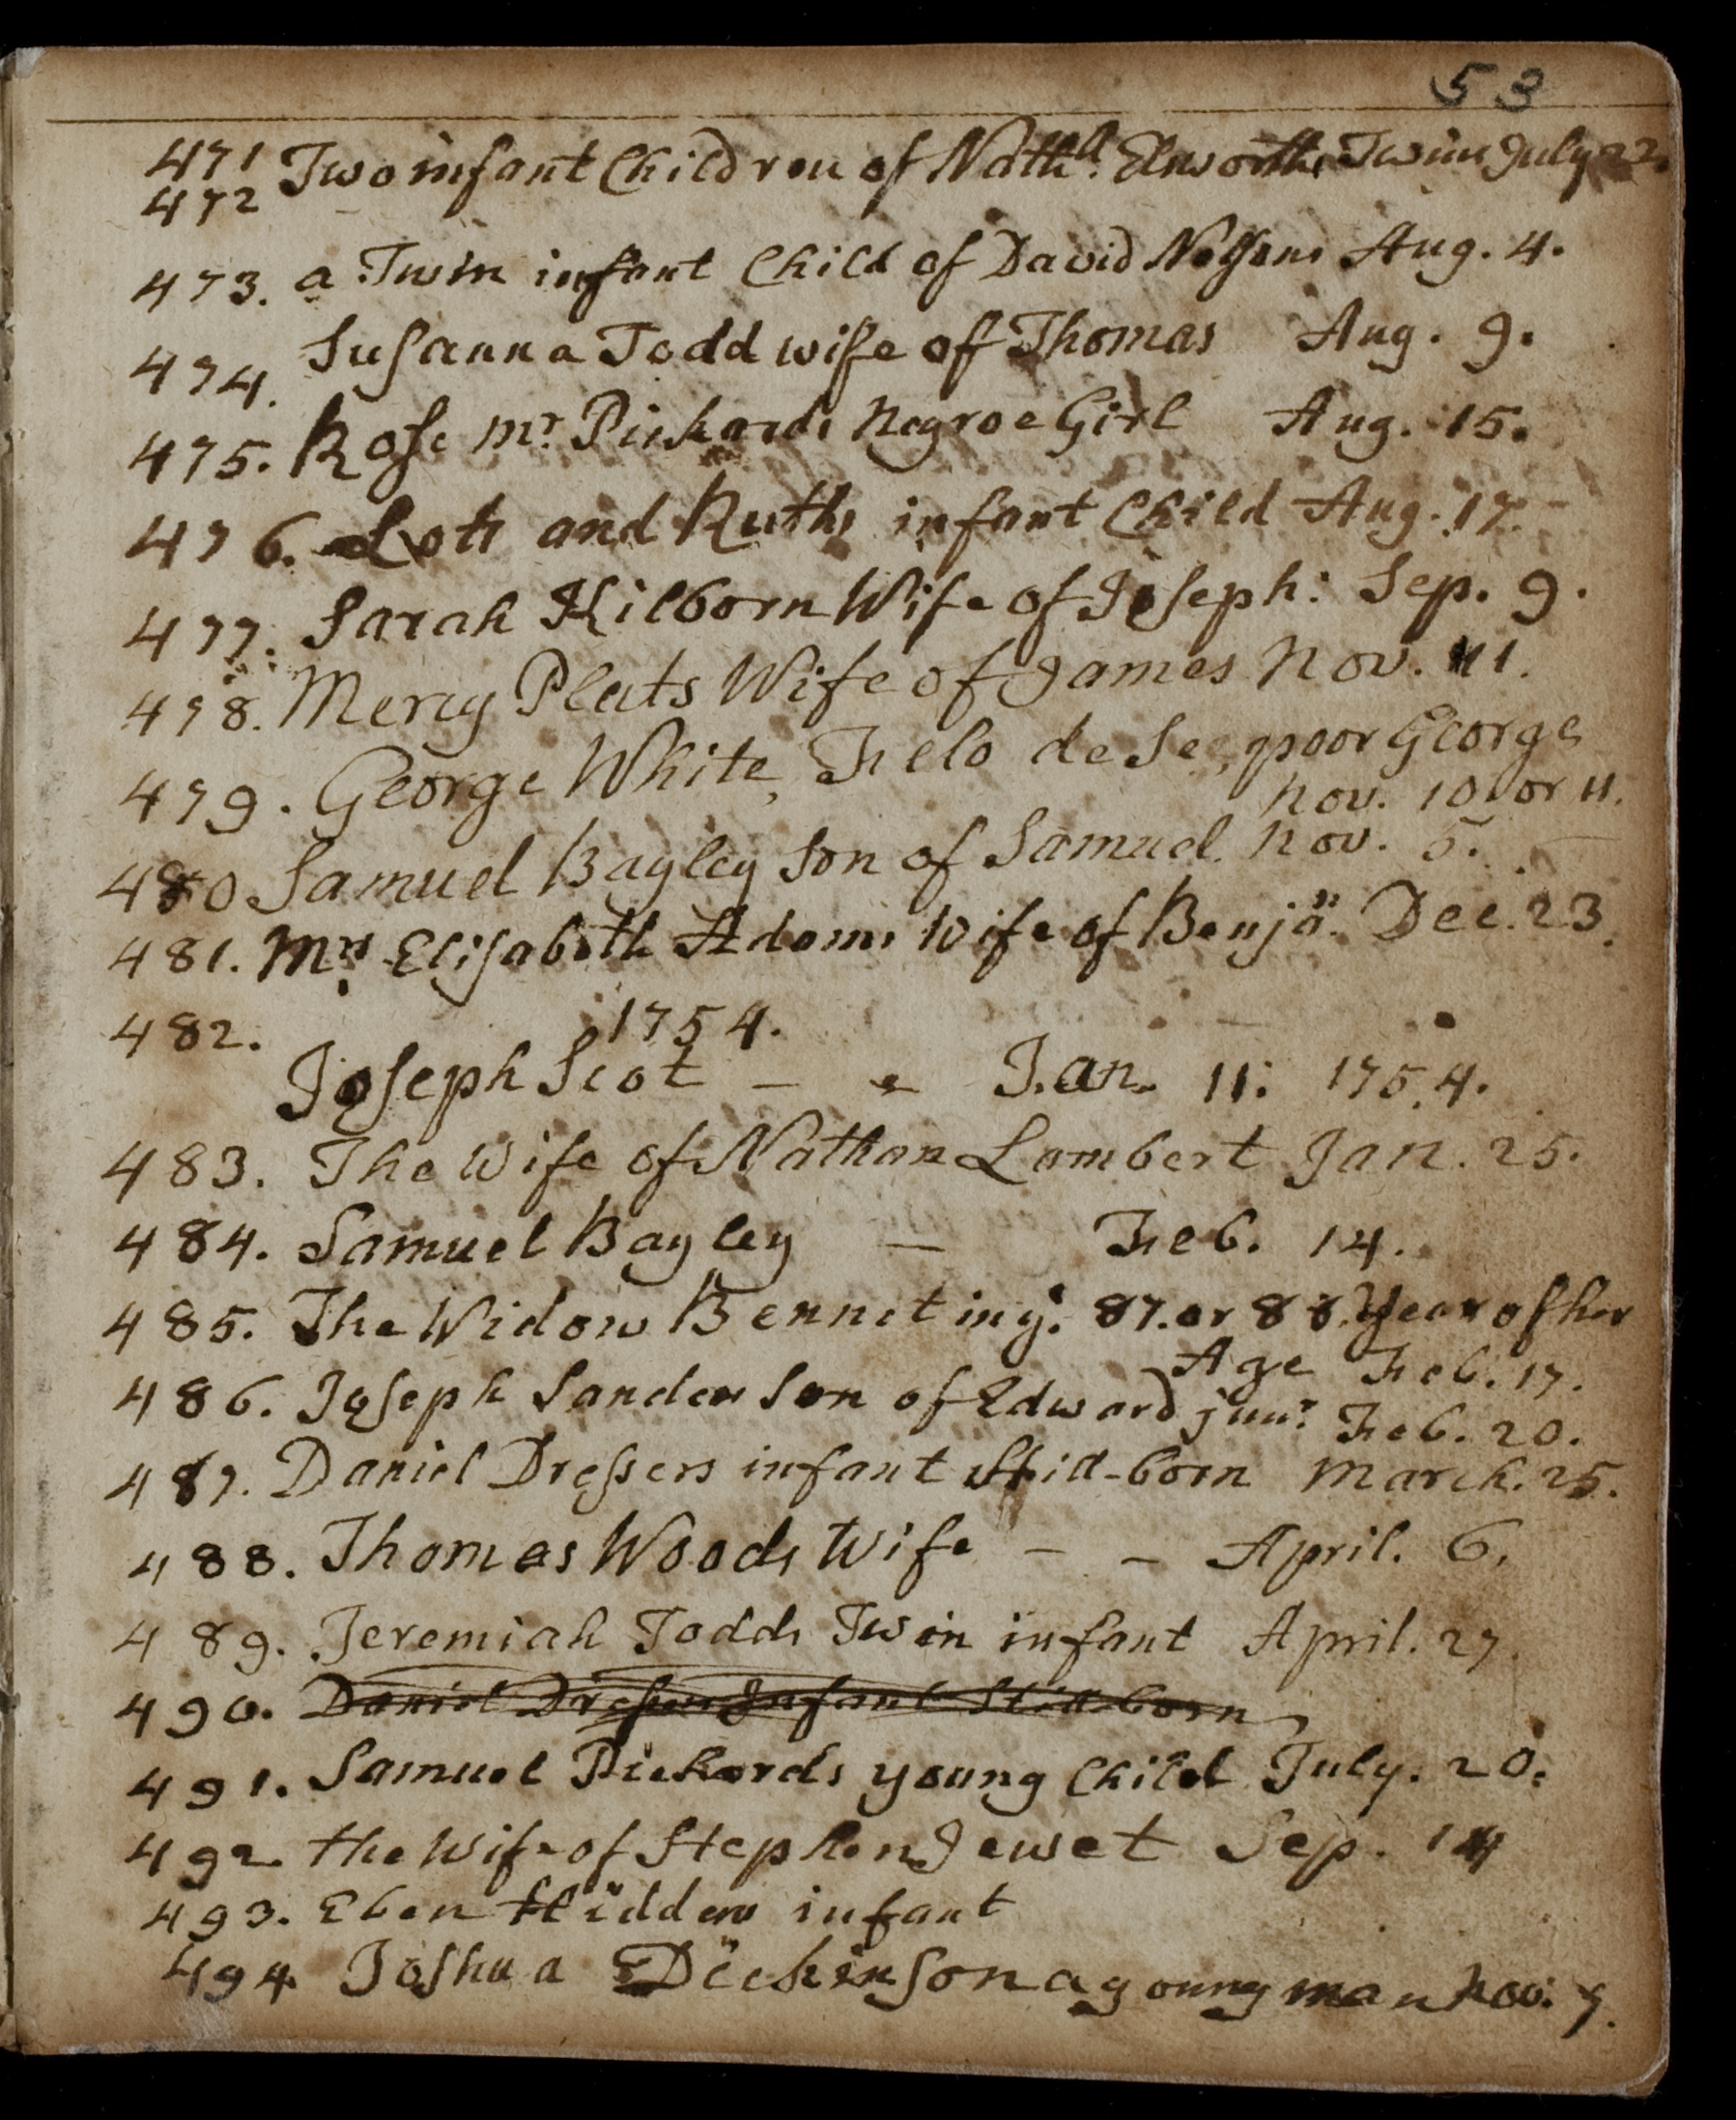 53
471 Two infant Children of Nathll. Elsworths Twins July 22.
472
473. a Twin infant Child of David Nelsons Aug. 4.
474. Susanna Todd wife of Thomas Aug. 9.
475. Rose Mr. Pickards Negroe Girl Aug. 15.
476. Lots and Ruths infant Child Aug. 17.
477. Sarah Kilborn Wife of Joseph: Sep. 9.
478. Mercy Plats Wife of James Nov. 11.
479. George White, Felo de Se, poor George
Nov. 10. or 11.
480 Samuel Bayley Son of Samuel. Nov. 5.
481. Mrs. Elisabeth Adams Wife of Benja. Dec. 23.
482. 1754.
Joseph Scot - - Jan. 11: 1754.
483. The Wife of Nathan Lambert Jan. 25.
484. Samuel Bayley - Feb. 14.
485. The Widow Bennet in ye. 87. or 88. Year of her
Age Feb. 17.
486. Joseph Sanders Son of Edward junr. Feb. 20.
487. Daniel Dressers infant Still-born March. 25.
488. Thomas Woods Wife - - April. 6.
489. Jeremiah Todds Twin infant April. 27
490. Daniel Dressers Infant Still-born
491. Samuel Pickards young Child July. 20.
492. the Wife of Stephen Jewet Sep. 14
493. Eben Hiddens infant
494 Joshua Dickinson a young man Nov. 7.